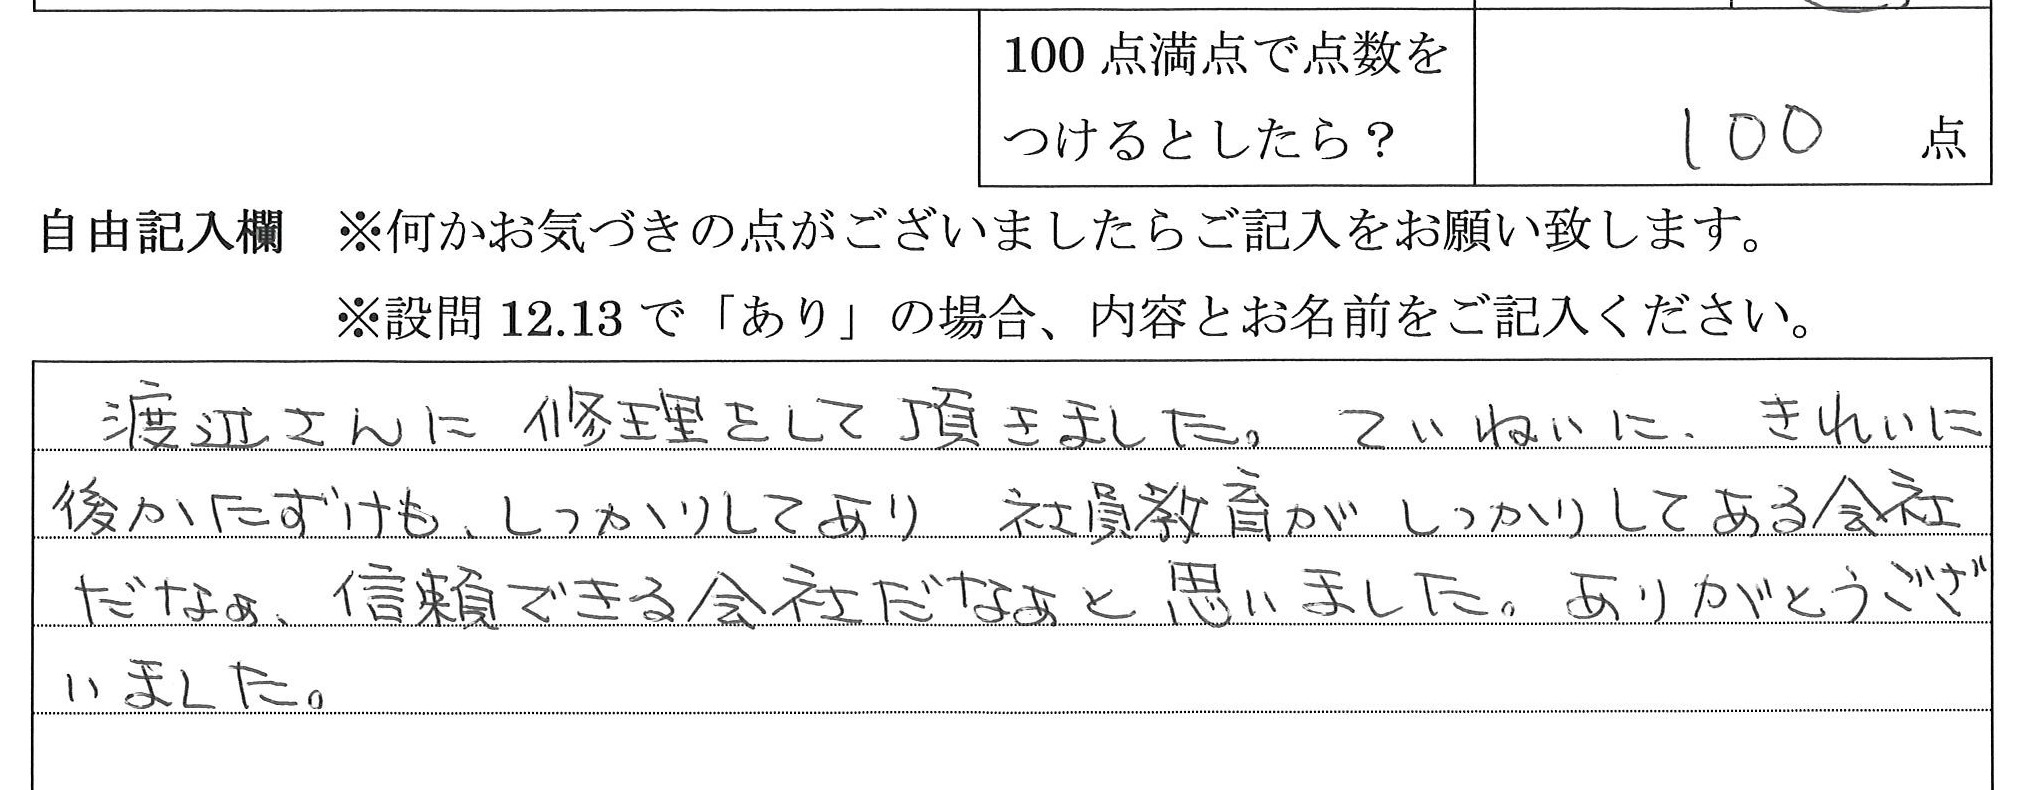 100 点満点で点数を
つけるとしたら？
100 点
自由記入欄 ※何かお気づきの点がございましたらご記入をお願い致します。
※設問 12.13 で「あり」の場合、内容とお名前をご記入ください。
渡辺さんに修理をして頂きました。ていねいに、きれいに
後かたずけも、しっかりしてあり 社員教育がしっかりしてある会社
だなぁ、信頼できる会社だなぁと思いました。ありがとうござ
いました。